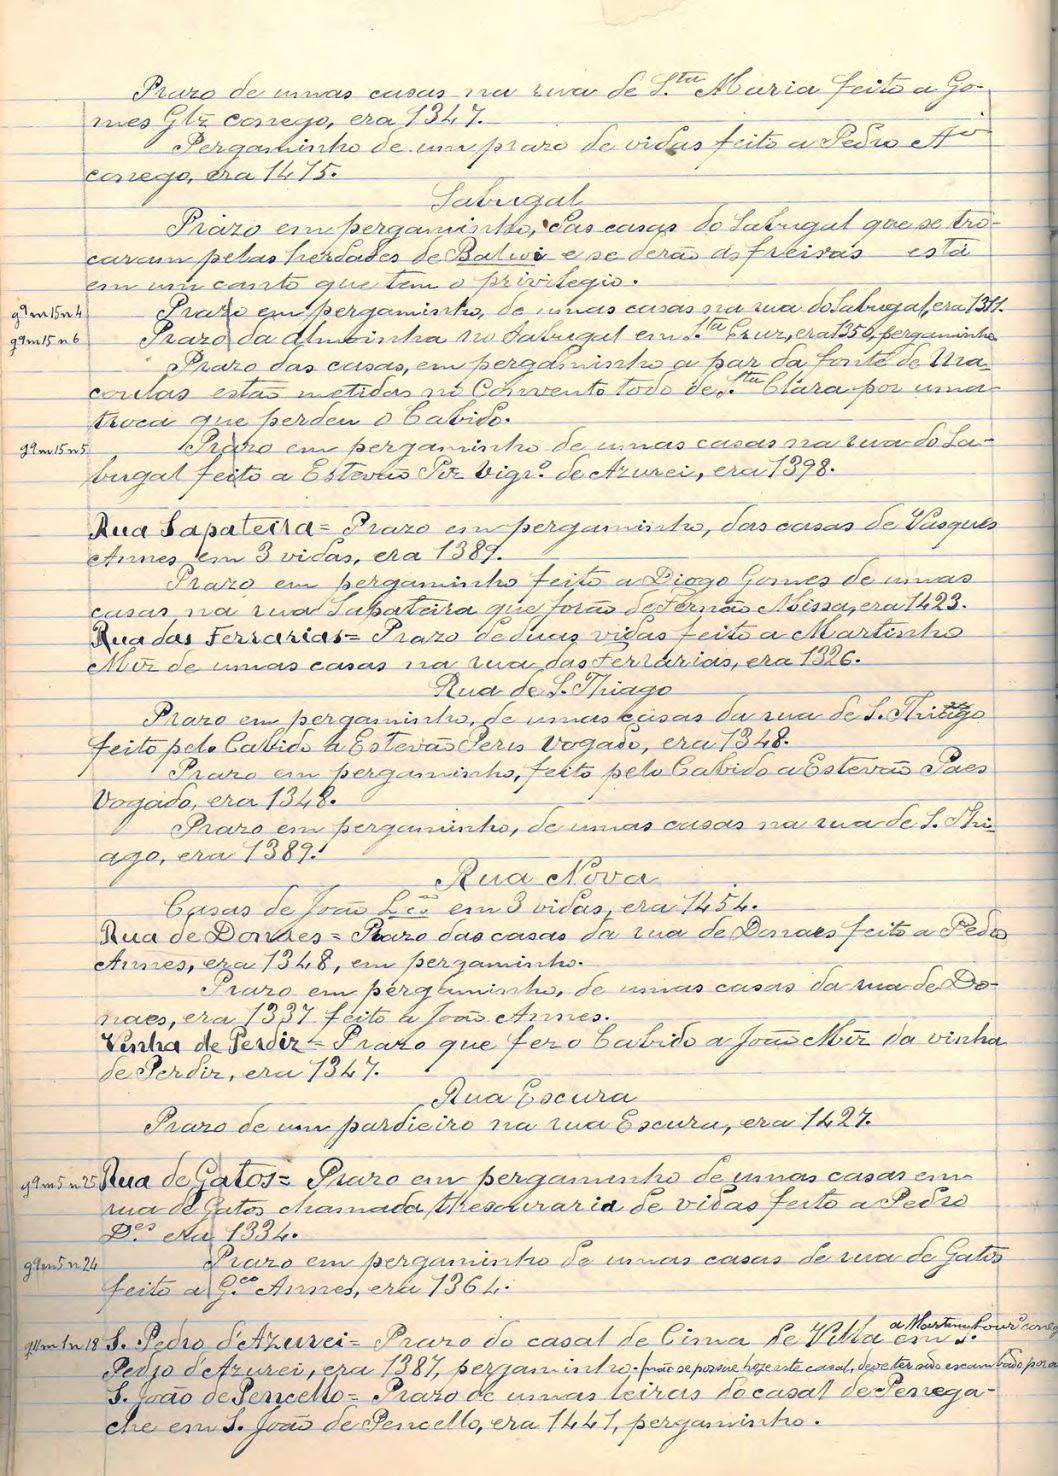 Prazo de umas casas na rua de S.ta Maria feito a Go-
mes Glz conego, era 1347.
Pergaminho de um prazo de vidas feito a Pedro
conego, era 1475.
Sabugal
Prazo em pergaminho, das casas do Sabugal que se tro-
caram pelas herdades de e se derão ás freiras está
em um canto que tem o privilegio.
g9 m15 n4 Prazo em pergaminho, de umas casas na rua do Sabugal, era 1311.
g9 m15 n6 Prazo da Almoinha no Sabugal em S.ta Cruz, era 1350, pergaminho
Prazo das casas, em pergaminho a par da fonte de Ma-
coulas estão metidas no Convento todo de S.ta Clara por uma
troca que perdeu o Cabido.
g9 m15 n5 Prazo em pergaminho de umas casas na rua do Sa-
bugal feito a Estevão Piz Vigr.o de Azurei, era 1398.
Rua Sapateira = Prazo em pergaminho, das casas de Vasques
Annes em 3 vidas, era 1389.
Prazo em pergaminho feito a Diogo Gomes de umas
casas na rua Sapateira que forão de Fernão Missa, era 1423.
Rua das Ferrarias = Prazo de duas vidas feito a Martinho
Miz de umas casas na rua das Ferrarias, era 1326.
Rua de S. Thiago
Prazo em pergaminho, de umas casas da rua de S. Thiago
feito pelo Cabido a Estevão Peris Vogado, era 1348.
Prazo em pergaminho, feito pelo Cabido a Estevão Paes
Vogado, era 1348.
Prazo em pergaminho, de umas casas na rua de S. Thi-
ago, era 1389.
Rua Nova
Casas de João em 3 vidas, era 1454.
Rua de Donaes = Prazo das casas da rua de Donaes feito a Pedro
Annes, era 1348, em pergaminho.
Prazo em pergaminho, de umas casas da rua de Do-
naes, era 1337 feito a João Annes.
Vinha de Perdiz = Prazo que fez o Cabido a João Miz da vinha
de Perdiz, era 1347.
Rua Escura
Prazo de um pardieiro na rua Escura, era 1427.
g9 m5 n25 Rua de Gatos = Prazo em pergaminho de umas casas em
rua de Gatos chamada thesouraria de vidas feito a Pedro
D.es era 1334.
g9 m5 n24 Prazo em pergaminho de umas casas de rua de Gatos
feito a G.co Annes, era 1364.
g11 m1 n18 S. Pedro d'Azurei = Prazo do casal de Cima de Villa a Martim Lour.o conego em S.
Pedro d'Azurei, era 1387, pergaminho. (não se possue hoje este casal, deve ter sido escambado por
S. João de Pencello = Prazo de umas leiras do casal de Penega-
che em S. João de Pencello, era 1441, pergaminho.